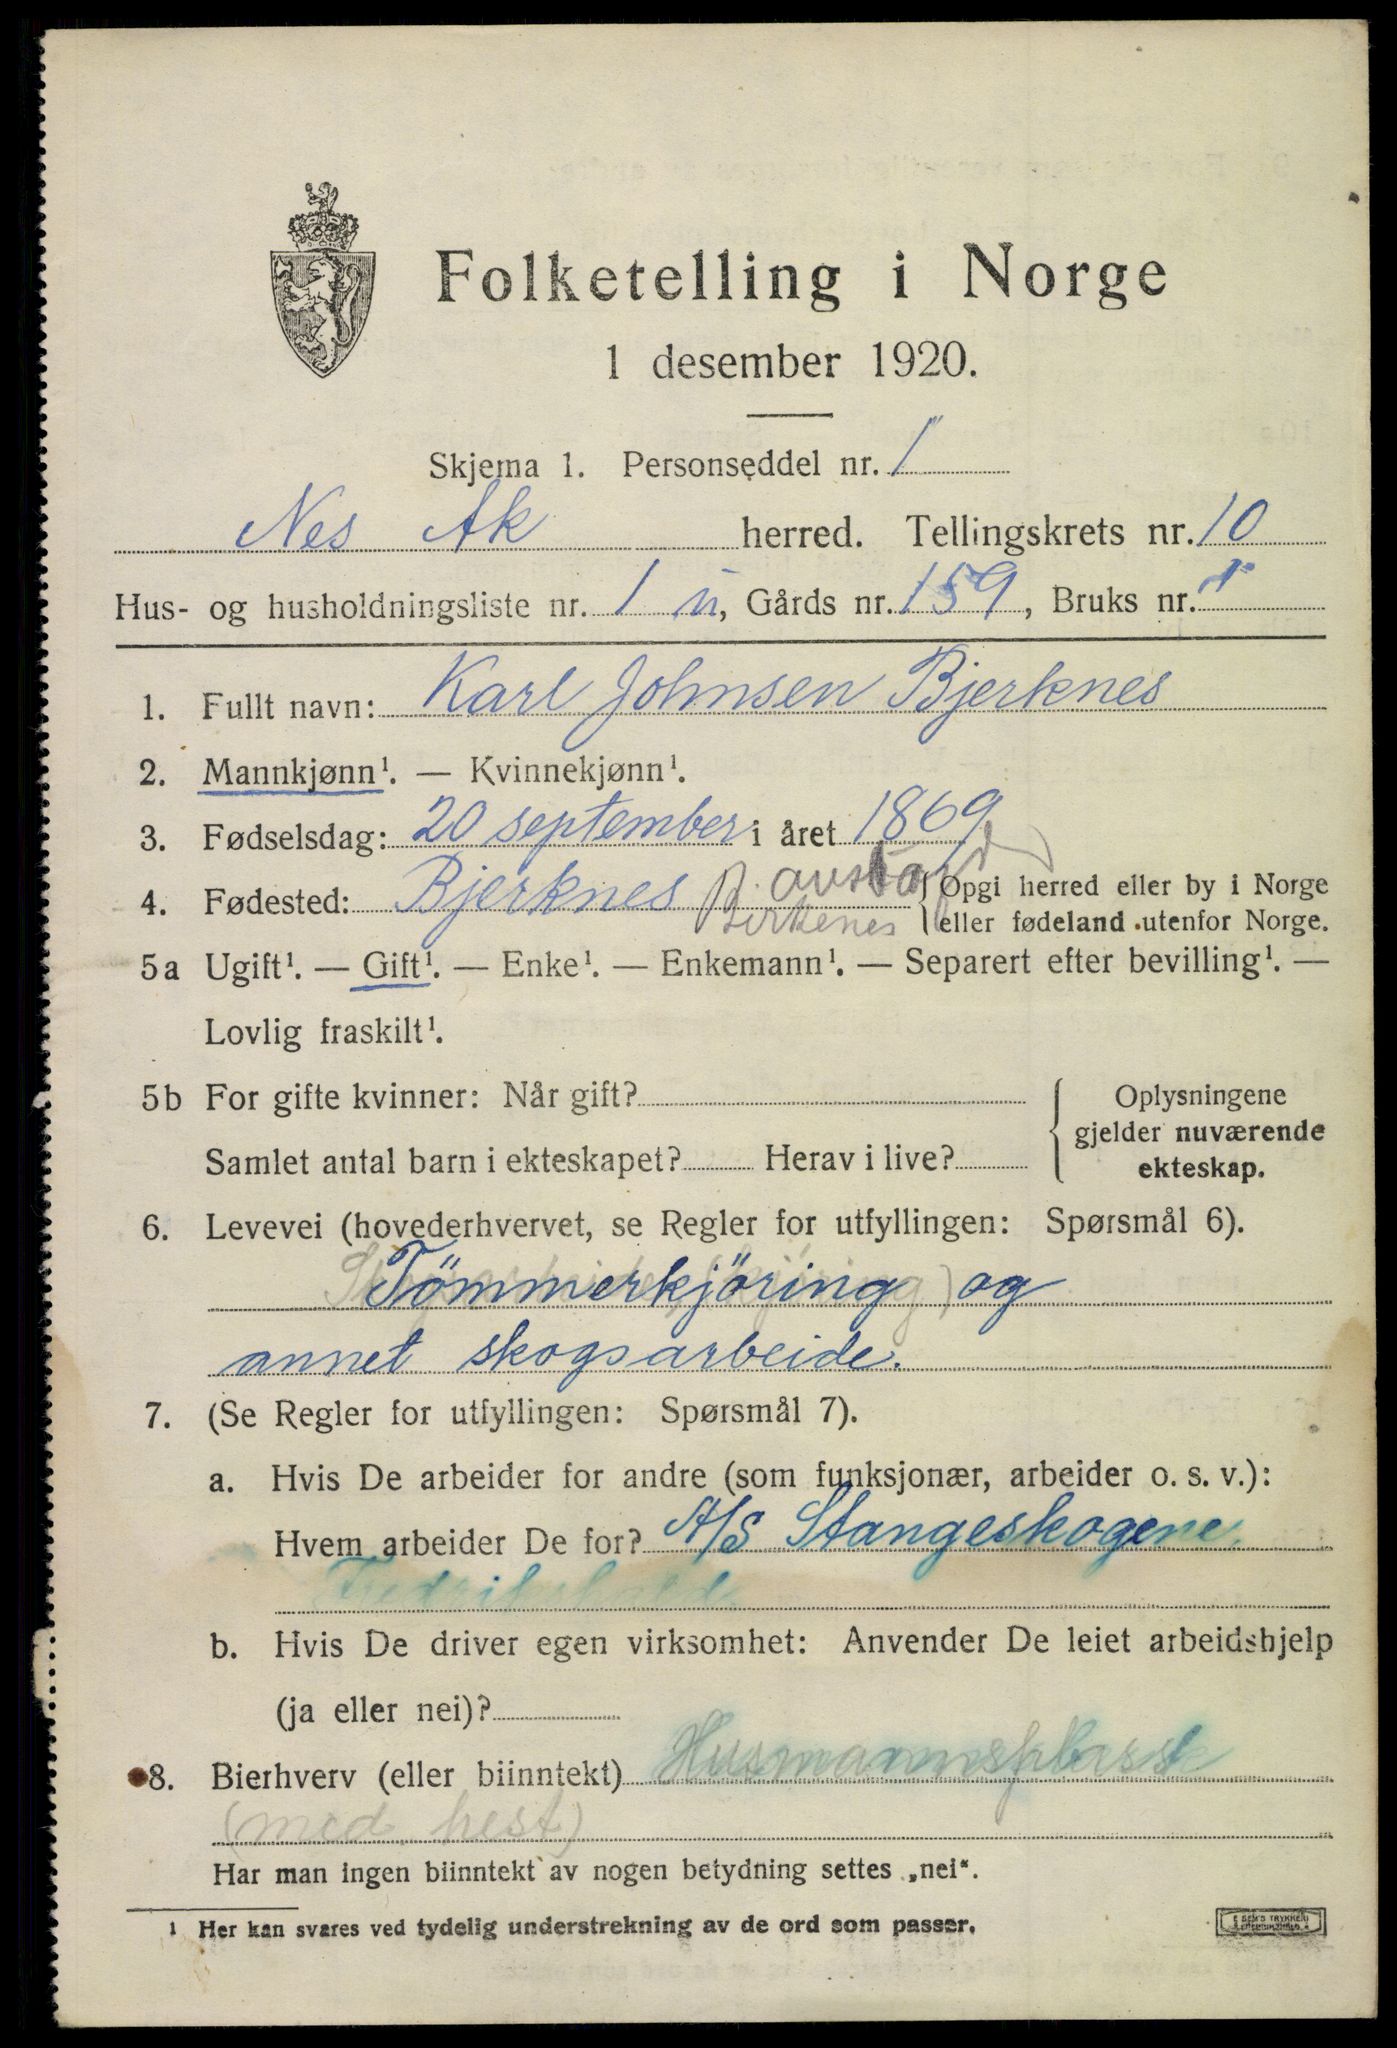 Folketelling i Norge
1 desember 1920.
Skjema 1. Personseddel nr. 1
Nes Ak herred. Tellingskrets nr. 10
Hus- og husholdningsliste nr. 1 u, Gårds nr. 159, Bruks nr. 1
1. Fullt navn: Karl Johnsen Bjerknes
2. Mannkjønn¹. — Kvinnekjønn¹.
3. Fødselsdag: 20 september i året 1869
4. Fødested: Bjerknes {Opgi herred eller by i Norge
Birkenes eller fødeland utenfor Norge.
5a Ugift¹. — Gift¹. — Enke¹. — Enkemann¹. — Separert efter bevilling¹. —
Lovlig fraskilt¹.
5b For gifte kvinner: Når gift? { Oplysningene
gjelder nuværende
Samlet antal barn i ekteskapet? Herav i live? ekteskap.
6. Levevei (hovederhvervet, se Regler for utfyllingen: Spørsmål 6).
Tömmerkjöring og
annet skogsarbeide.
7. (Se Regler for utfyllingen: Spørsmål 7).
a. Hvis De arbeider for andre (som funksjonær, arbeider o. s. v.):
Hvem arbeider De for? A/S Stangeskogene
Fredrikshald
b. Hvis De driver egen virksomhet: Anvender De leiet arbeidshjelp
(ja eller nei)?
8. Bierhverv (eller biinntekt) Husmannsplass
(med hest)
Har man ingen biinntekt av nogen betydning settes „nei“.
¹ Her kan svares ved tydelig understrekning av de ord som passer.